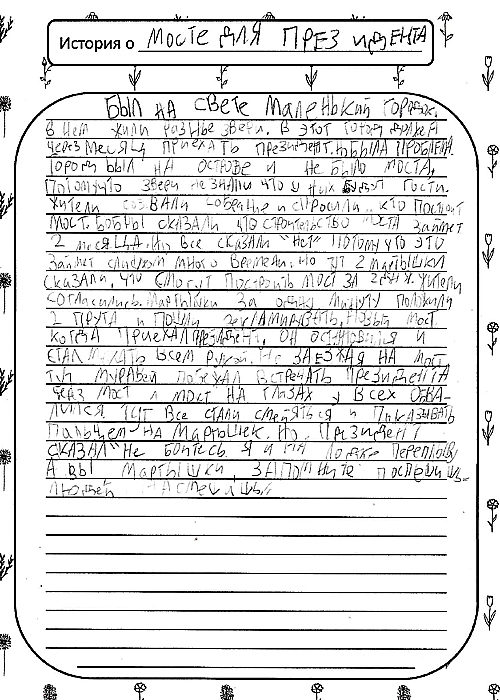 История о мосте для президента
Был на свете маленький городок.
В нём жили разные звери. В этот город должен
через месяц приехать президент. Но была проблема
город был на острове и не было моста,
потому что звери не знали что у них будут гости.
Жители созвали собрание и спросили: кто построит
мост. Бобры сказали что строительство моста займёт
2 месяца. Но все сказали "нет" потому что это
займёт слишком много времени. Но тут 2 мартышки
сказали, что смогут построить мост за жители
согласились. Мартышки за одну минуту положили
2 прута и пошли новый мост.
Когда приехал президент, он остановился и
стал махать всем рукой. Не заезжая на мост
тут муравей поехал встречать президента
через мост и мост на глазах у всех обва-
лился тут все стали смеяться и показывать
пальцем на мартышек. Но президент
сказал "Не бойтесь я и на лодке переплыву
А вы мартышки, запомните поспешишь-
людей насмешишь"